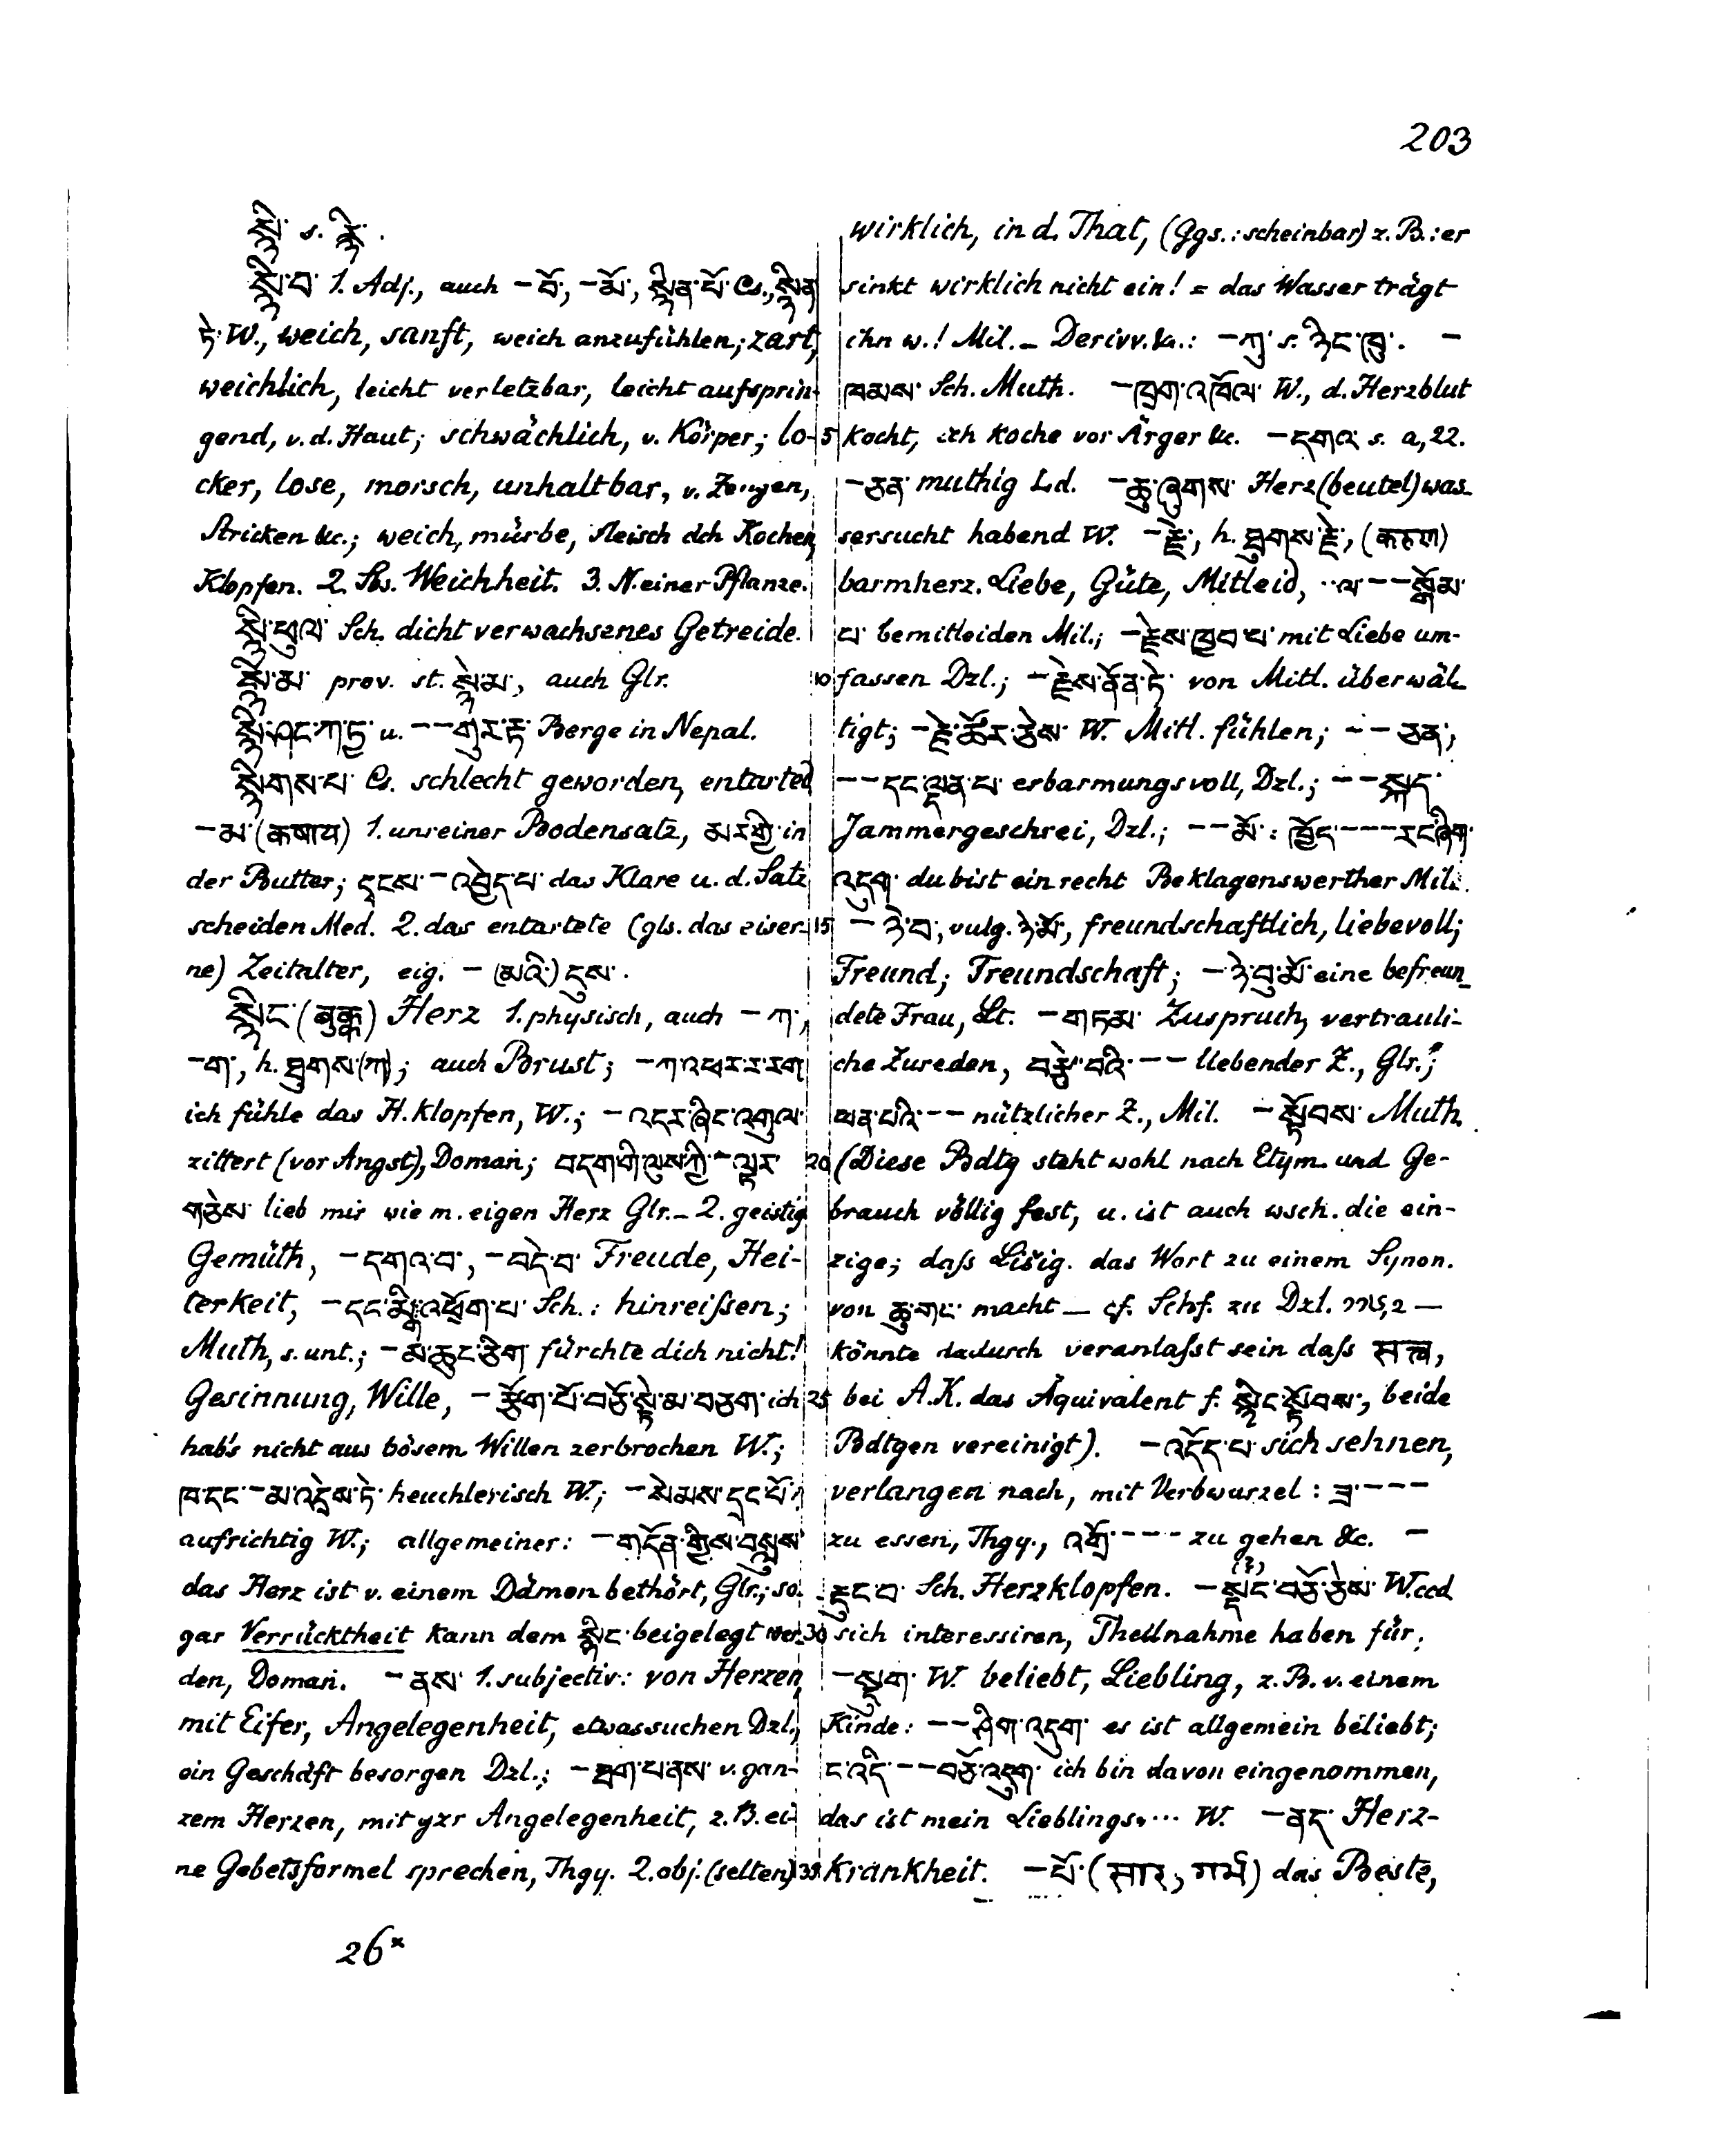 203
སྙི་ s. རྙི་.
སྙི་བ་ 1. Adj., auch –བོ་, –མོ་, སྙིན་པོ་ Cs., སྙིན
ཏེ་ W., weich, sanft, weich anzufühlen; zart,
weichlich, leicht verletzbar, leicht aufsprin-
gend, v. d. Haut; schwächlich, v. Körper; lo-
cker, lose, morsch, unhaltbar, v. Zeugen,
Stricken &c.; weich, mürbe, Fleisch dch Kochen,
Klopfen. 2. Sbs. Weichheit. 3. N. einer Pflanze.
སྙི་ཕུལ་ Sch. dicht verwachsenes Getreide.
སྙི་མ་ prov. st. སྙེ་མ་, auch Glr.
སྙི་ཤང་ཀ་ཏྱ་ u. –– གུར་ཏ་ Berge in Nepal.
སྙིགས་པ་ Cs. schlecht geworden, entartet
–མ་ (कषाय) 1. unreiner Bodensatz, མར་གྱི་ in
der Butter; དྭངས་–འབྱེད་པ་ das Klare u. d. Satz
scheiden Med. 2. das entartete (gls. das eiser-
ne) Zeitalter, eig. –(མའི་) དུས་.
སྙིང་ (बुक्क) Herz 1. physisch, auch –ཀ་,
–ག་, h. ཐུགས་(ཀ); auch Brust; –ཀ་འཕར་ར་རག
ich fühle das H. klopfen, W.; –འདར་ཞིང་འགུལ་
zittert (vor Angst), Domaṅ; བདག་གི་ལུས་ཀྱི་–ལྟར་
གཅེས་ lieb mir wie m. eigen Herz Glr. – 2. geistig
Gemüth, –དགའ་བ་, –བདེ་བ་ Freude, Hei-
terkeit, –དང་མྙི་འཕྲོག་པ་ Sch.: hinreißen;
Muth, s. unt.; –མ་ཆུང་ཅིག fürchte dich nicht!
Gesinnung, Wille, –རྩོག་པོ་བཅོ་སྟེ་མ་བཅག་ ich
hab's nicht aus bösem Willen zerbrochen W.;
ཁ་དང་–མ་འདྲེས་ཏེ་ heuchlerisch W.; –སེམས་དྲང་པོ་
aufrichtig W.; allgemeiner: –གདོན་གྱིས་བསླུས་
das Herz ist v. einem Dämon bethört, Glr.; so-
gar Verrücktheit kann dem སྙིང་ beigelegt wer-
den, Domaṅ. –ནས་ 1. subjectiv: von Herzen,
mit Eifer, Angelegenheit, etwas suchen Dzl.,
ein Geschäft besorgen Dzl.; –ཐག་པ་ནས་ v. gan-
zem Herzen, mit gzr Angelegenheit, z. B. ei-
ne Gebetsformel sprechen, Thgy. 2. obj. (selten)
wirklich, in d. That, (Ggs.: scheinbar) z. B.: er
sinkt wirklich nicht ein! = das Wasser trägt
ihn w.! Mil. – Derivv. &c.: –ཀུ་ s. ཉིང་ཁུ་. –
ཁམས་ Sch. Muth. –ཁྲག་འཁོལ་ W., d. Herzblut
5 kocht, ich koche vor Ärger &c. –དགའ་ s. a, 22.
–ཅན་ muthig Ld. –ཆུ་ཞུགས་ Herz(beutel)was-
sersucht habend W. –རྗེ་, h. ཐུགས་རྗེ་, (करुणा)
barmherz. Liebe, Güte, Mitleid, ..ལ་––སྒོམ་
པ་ bemitleiden Mil.; –རྗེས་ཁྱབ་པ་ mit Liebe um-
10 fassen Dzl.; –རྗེས་ནོན་ཏེ་ von Mitl. überwäl-
tigt; –རྗེ་ཚོར་ཅེས་ W. Mitl. fühlen; ––ཅན་,
––དང་ལྡན་པ་ erbarmungsvoll, Dzl.; ––སྐད་
Jammergeschrei, Dzl.; ––མོ་: ཁྱོད་–––རང་ཞིག་
འདུག་ du bist ein recht Beklagenswerther Mil.
15 –ཉེ་བ་, vulg. ཉེ་མོ་, freundschaftlich, liebevoll;
Freund; Freundschaft; –ཉེ་བུ་མོ་ eine befreun-
dete Frau, Lt. –གཏམ་ Zuspruch, vertrauli-
che Zureden, བརྩེ་བའི་–– liebender Z., Glr.;
ཕན་པའི་–– nützlicher Z., Mil. –སྟོབས་ Muth.
20 (Diese Bdtg steht wohl nach Etym. und Ge-
brauch völlig fest, u. ist auch wsch. die ein-
zige; daß Lišig. das Wort zu einem Synon.
von ཆུ་གང་ macht – cf. Schf. zu Dzl. , 2 –
könnte dadurch veranlaßt sein daß सत्त्व,
25 bei A. K. das Äquivalent f. སྙིང་སྟོབས་, beide
Bdtgen vereinigt). –འདོད་པ་ sich sehnen,
verlangen nach, mit Verbwurzel: ཟ་–––
zu essen, Thgy., འགྲོ་––– zu gehen &c. –
རྡུང་བ་ Sch. Herzklopfen. –སྡང་(?)བཅོ་ཅེས་ W. ccd
30 sich interessiren, Theilnahme haben für,
–སྡུག་ W. beliebt, Liebling, z. B. v. einem
Kinde: ––ཤིག་འདུག་ es ist allgemein beliebt;
ང་འདི་––བཅོ་འདུག་ ich bin davon eingenommen,
das ist mein Lieblings.... W. –ནད་ Herz-
35 krankheit. –པོ་ (सार, गर्भ) das Beste,
26*